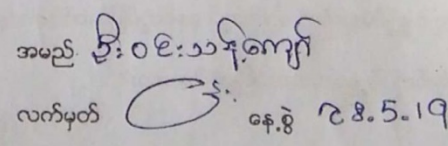 အမည် ဦးဝင်းသန့်ကျော်
လက်မှတ် နေ့စွဲ ၃.5.19